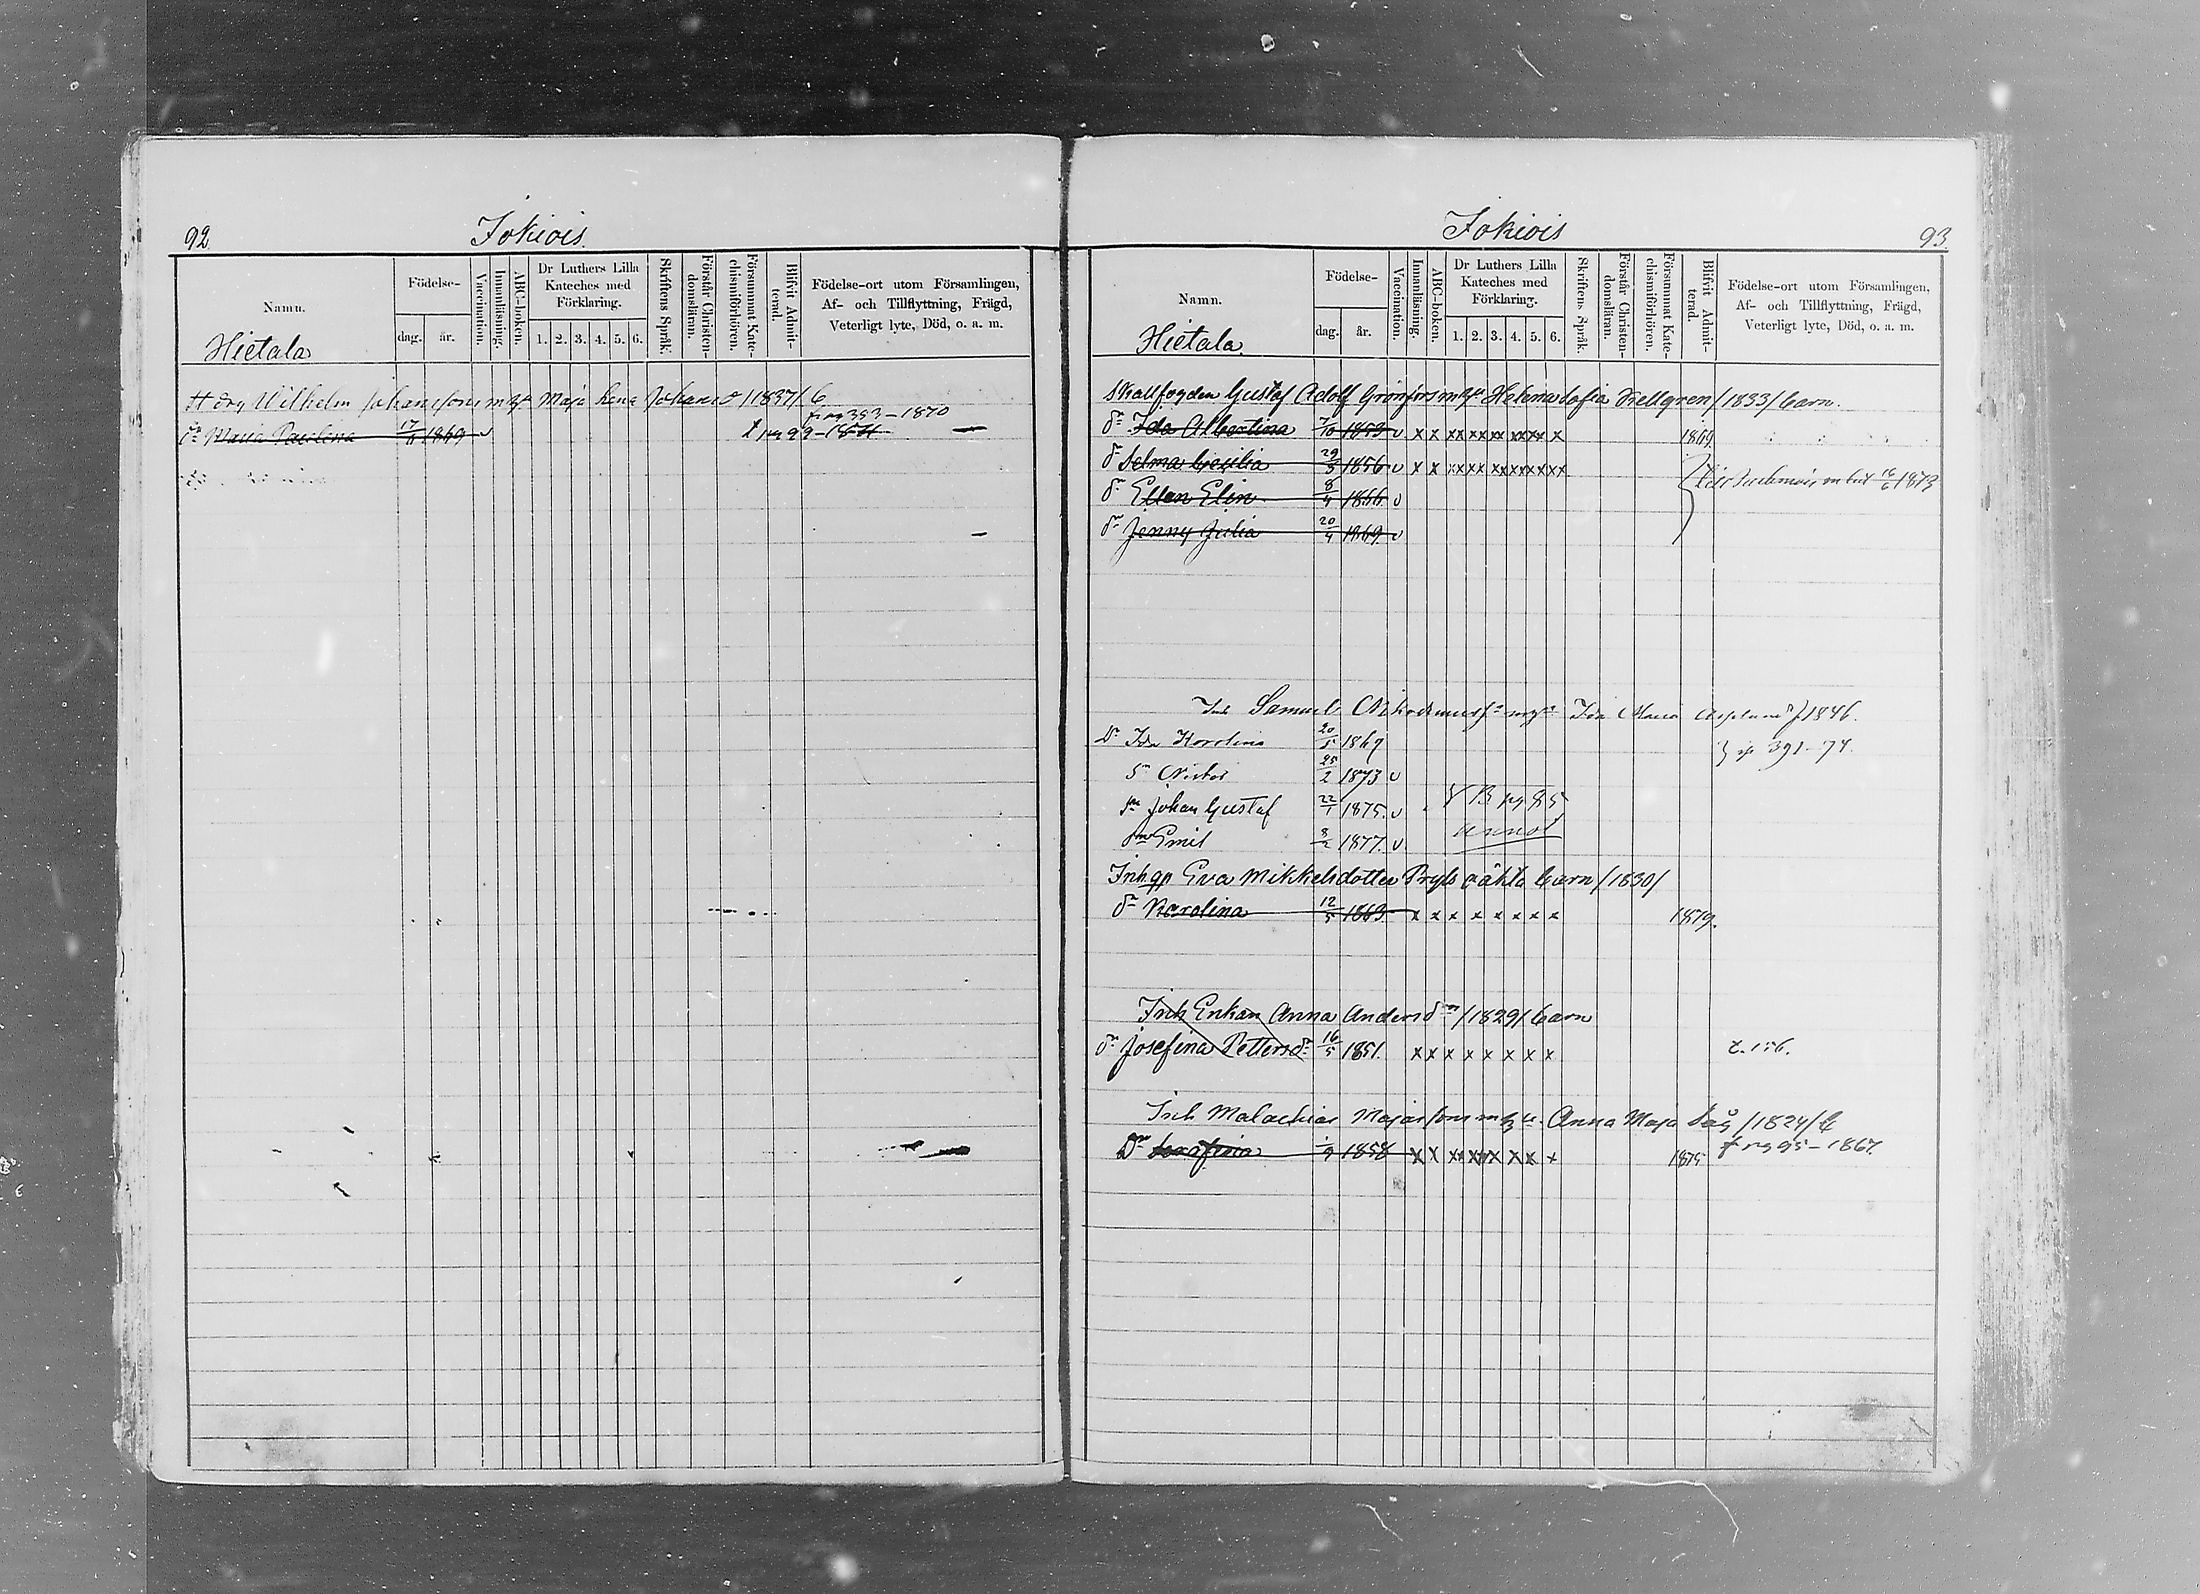 92
Jokiois
Namn.
Hietala
Födelse-
dag.
år.
Vaccination.
Innanläsning.
ABC-boken.
Dr Luthers Lilla
Kateches med
Förklaring.
1. 2. 3. 4. 5. 6.
Skriftens Språk.
Förstår Christen-
domsläran.
Försummat Kate-
chismiförhören.
Blifvit Admit-
terad.
Födelse-ort utom Församlingen,
Af- och Tillflyttning, Frägd,
Veterligt lyte, Död, o. a. m.
Wilhelm Johansson Maja Lena /1837/ b
393-1870
Maria Paulina 17 1869 v
99-1871
Jokiois
93.
Namn.
Hietala.
Födelse-
dag.
år.
Vaccination.
Innanläsning.
ABC-boken.
Dr Luthers Lilla
Kateches med
Förklaring.
1. 2. 3. 4. 5. 6.
Skriftens Språk.
Förstår Christen-
domsläran.
Försummat Kate-
chismiförhören.
Blifvit Admit-
terad.
Födelse-ort utom Församlingen,
Af- och Tillflyttning, Frägd,
Veterligt lyte, Död, o. a. m.
Gustaf Adolf Grönfors Helena Sofia /1833/ barn.
dr Ida Albertina 7/10 1853 v x x xx xx xx xxxx x 1869
dr Selma Cecilia 29 1856 v x x
16/6 1873
dr Ellen Elin 8/4 1866 v
dr Jenny Julia 20/4 1869. v
Samuel Ida Maria 1846.
Dr Ida Karolina 20/5 1869
391-74.
25/2 1873 v
sn Johan Gustaf 22/1 1875. v
B pg 85
sn Emil 8/2 1877. v
annot
Inh. qp Eva Mikkelsdotter oäkta barn /1830/
dr Karolina 12/5 1863. x x x x x x x x 1879.
Inh Enkan Anna Andersdr /1829/ barn
dr Josefina Pettersdr 16/5 1851. x x x x x x x x
t. 156.
Inh Malachias Majasson Anna Maja /1824/ b
pg 95-1867.
Dr Serafina 1/9 1858 x x 1875